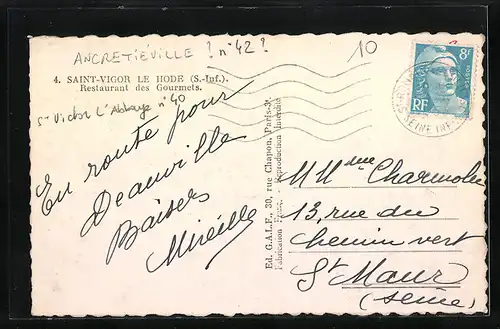 ANCRETIÉVILLE ? n°42 ?
10
4. SAINT-VIGOR LE HODE (S.-Inf.).
Restaurant des Gourmets.
St Victor L'Abbaye n°40
8F
RF
SEINE INF
En route pour
Deauville
Baisers
Mireille
Ed. G.A.L.F., 30, rue Chapon, Paris-3e
Fabrication Franç. - Reproduction Interdite
M Mme Charmolu
13, rue du
chemin vert
St Maur
(Seine)